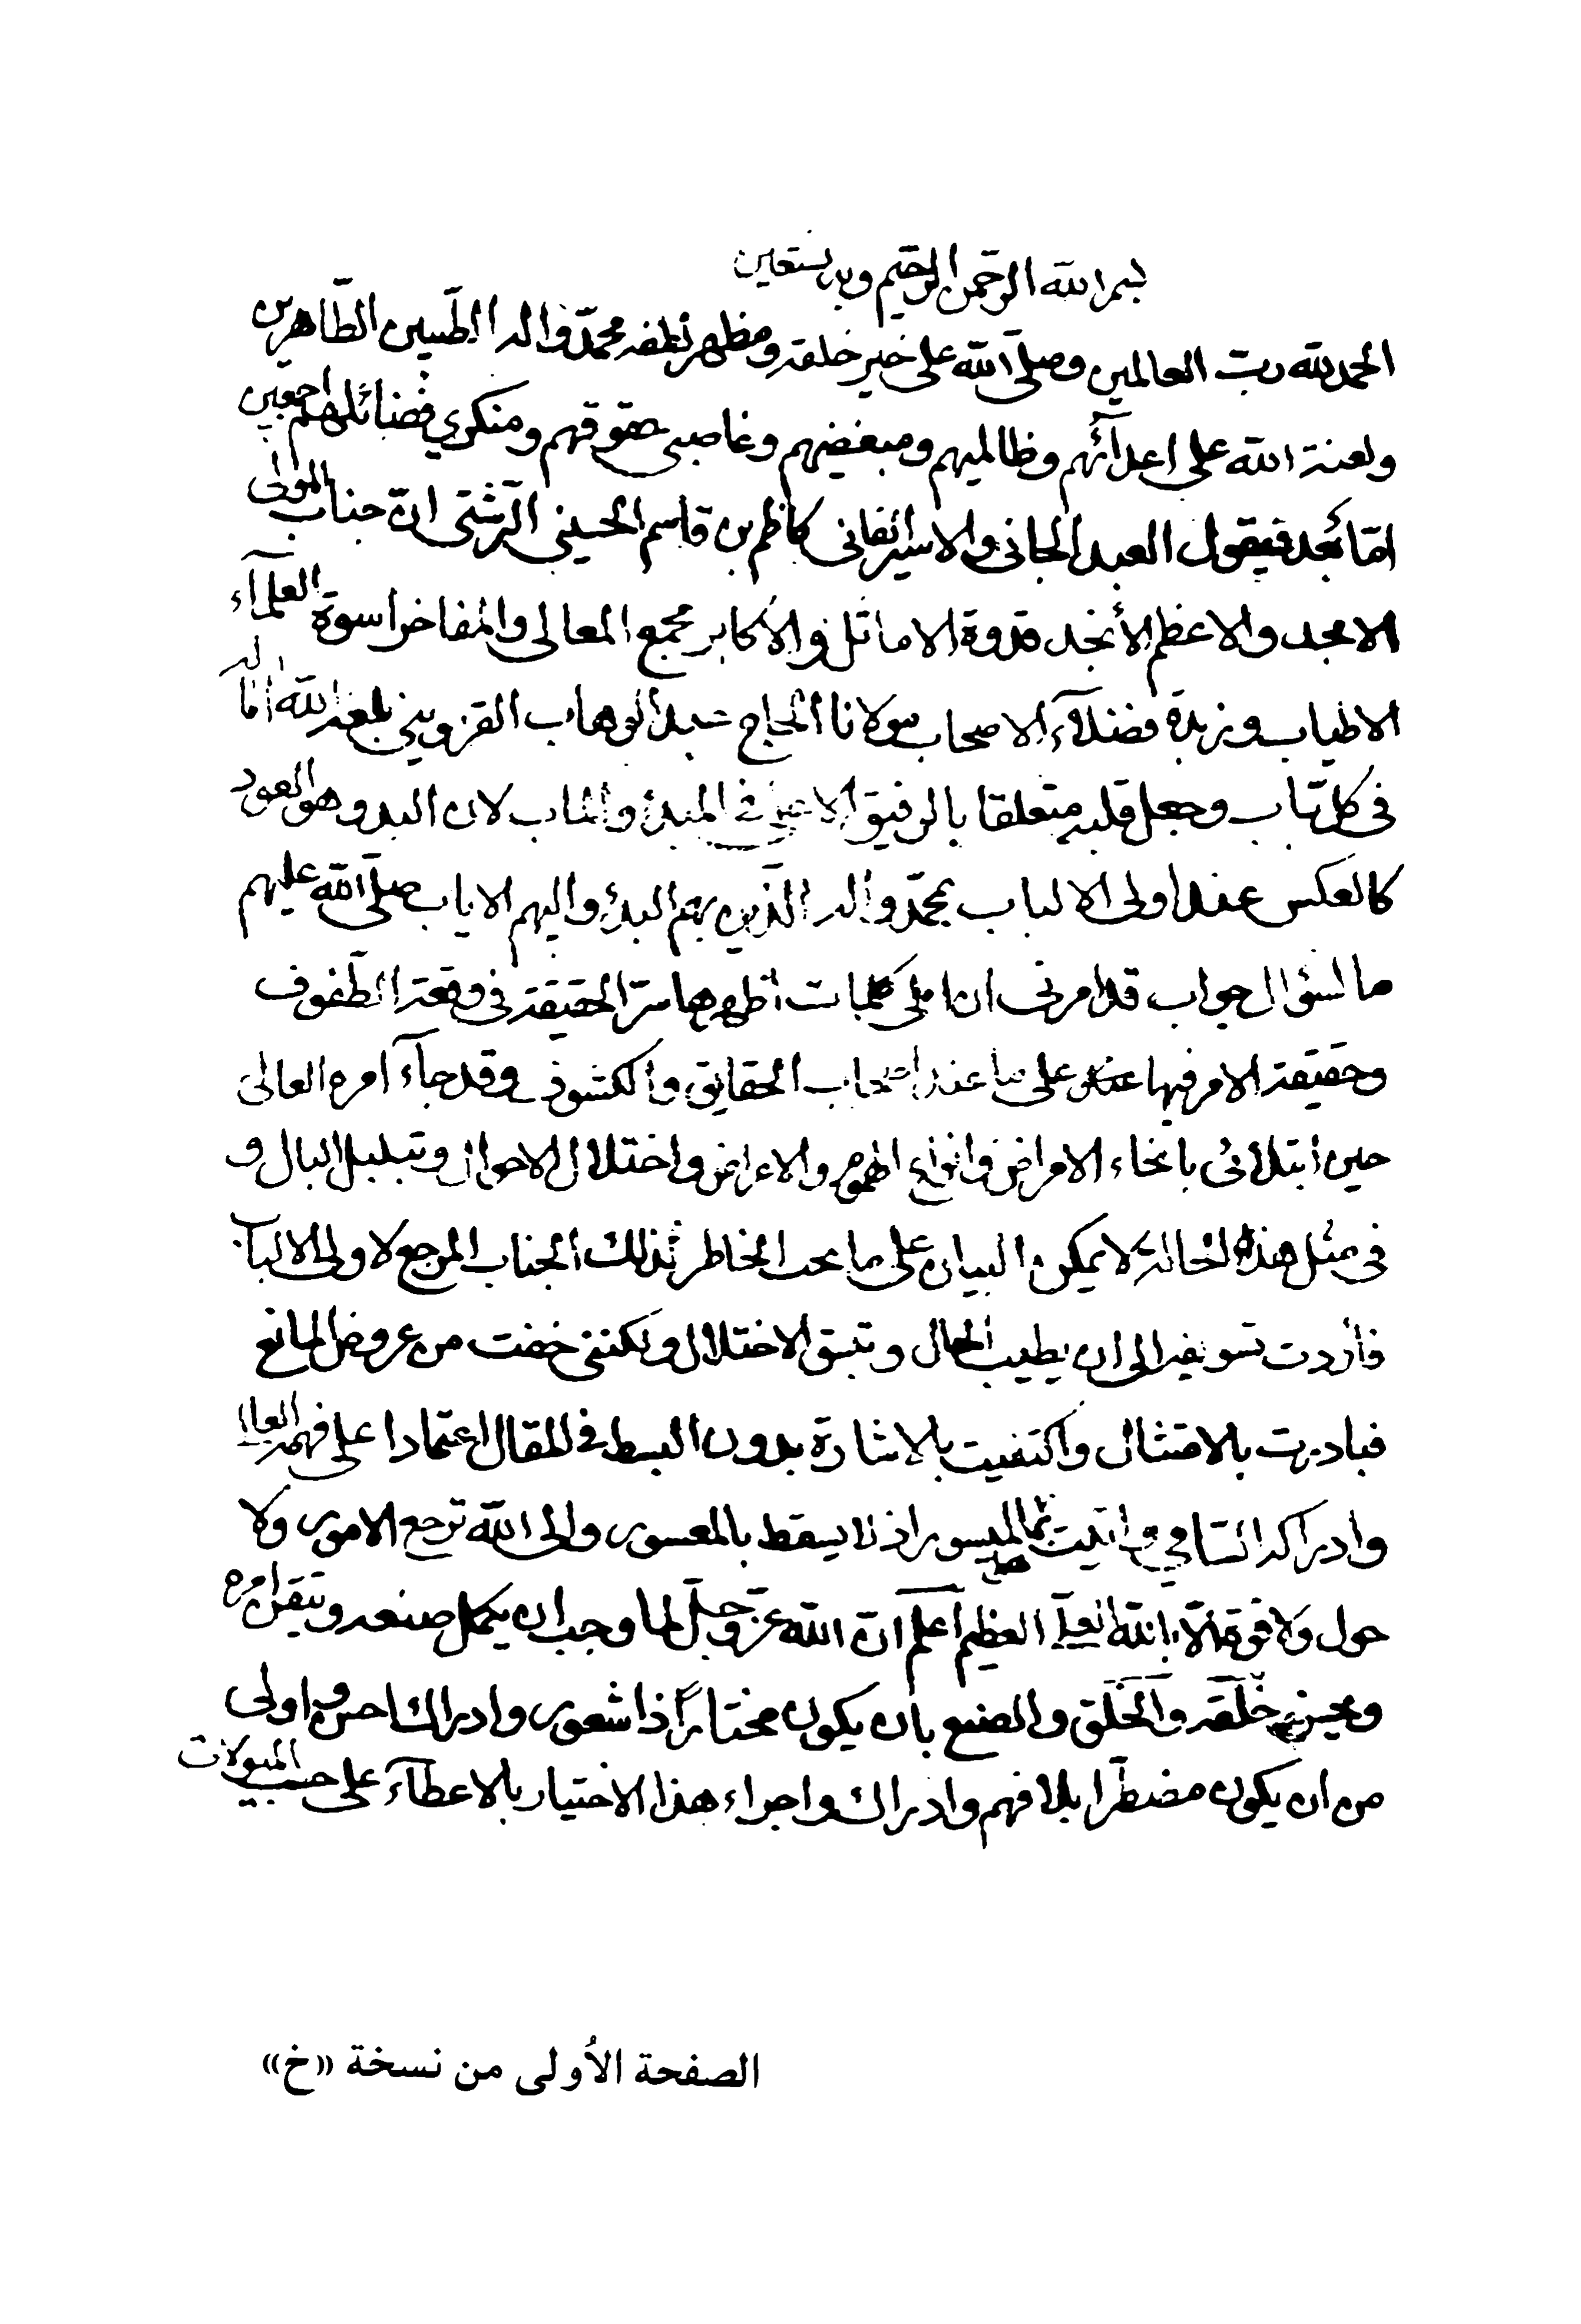 بسم الله الرحمن الرحيم وبه نستعين
الحمد لله رب العالمين وصلّى الله على خير خلقه ومظهر لطفه محمّد واله الطّيبين الطّاهرين
ولعنة الله على اعدآئهم وظالميهم ومبغضيهم وغاصبى حقوقهم ومنكري فضائلهم اجمعين
امّا بعد فيقول العبد الجانى والاسير الفانى كاظم بن قاسم الحسينى الرّشتى انّ جناب المولى
الامجد والاعظم الأنجد قدوة الاماثل والاكابر مجمع المعالى والمفاخر اسوة العلمآء
الاطياب وزبدة فضلآء الاصحاب مولانا الحاج عبد الوهاب القزوينى بلغه الله اماله
فى كل باب وجعل قلبه متعلقا بالرفيق الاعلى فى المبدأ والماب لان البدو هو العود
كالعكس عند اولى الالباب بمحمّد واله الّذين بهم البدؤ واليهم الاياب صلّى الله عليهم
ما لسؤال جواب قد امرنى ان املى كلمات اظهر بها سرّ الحقيقة فى وقعة الطّفوف
وحقيقة الامر فيها على ما عند اصحاب الحقايق والكشوف وقد جآء امره العالى
حين ابتلائى بانحاء الامراض وانواع الهموم والاعراض واختلال الاحوال وتبلبل البال و
فى مثل هذه الحالة لا يمكن البيان على ما يحب الخاطر لذلك الجناب المرجع لاولى الالباب
فأردت تسويفه الى ان يطيب الحال و الاختلال ولكننى خفت من عروض المانع
فبادرت بالامتثال واكتفيت بالاشارة بدون البسط فى المقال اعتمادا على فهمه العالى
وادراكه السّامى واتيت بما الميسور اذ لا يسقط بالمعسور والى الله ترجع الامور ولا
حول ولا قوة الّا بالله العلىّ العظيم اعلم انّ الله عزّ وجلّ لما وجب ان يكمل صنعه ويتقن امره
ويحسن خلقه والخلق والصنع بان يكون مختاراً ذا شعور وادراك احسن واولى
من ان يكون مضطرّا بلا فهم وادراك واجراء هذا الاختيار بالاعطآء على حسب الميولات
الصفحة الأولى من نسخة «خ»